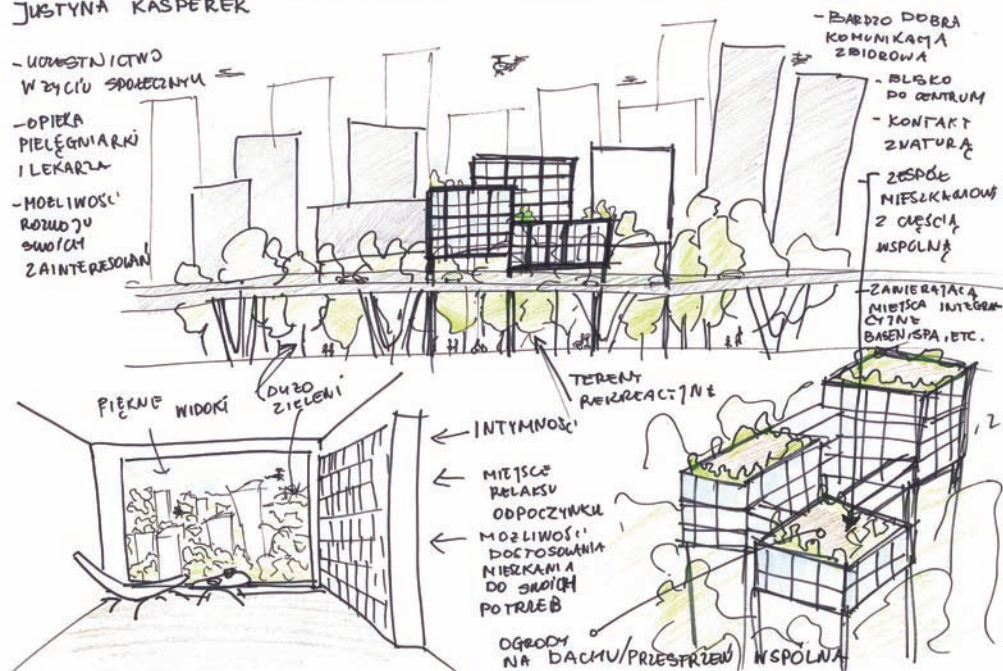 JUSTYNA KASPEREK
- UCZESTNICTWO
W ŻYCIU SPOŁECZNYM
- OPIEKA
PIELĘGNIARKI
I LEKARZA
- MOŻLIWOŚĆ
ROZWOJU
SWOICH
ZAINTERESOWAŃ
- BARDZO DOBRA
KOMUNIKACJA
ZBIOROWA
- BLISKO
DO CENTRUM
- KONTAKT
Z NATURĄ
ZESPÓŁ
MIESZKANIOWY
Z CZĘŚCIĄ
WSPÓLNĄ
- ZAWIERAJĄCĄ
MIEJSCA INTEGRA
CYJNE
BASEN, SPA, ETC.
PIĘKNE WIDOKI
DUŻO
ZIELENI
TERENY
REKREACYJNE
INTYMNOŚĆ
MIEJSCE
RELAKSU
ODPOCZYNKU
MOŻLIWOŚĆ
DOSTOSOWANIA
MIESZKANIA
DO SWOICH
POTRZEB
OGRODY
NA DACHU/PRZESTRZEŃ WSPÓLNA